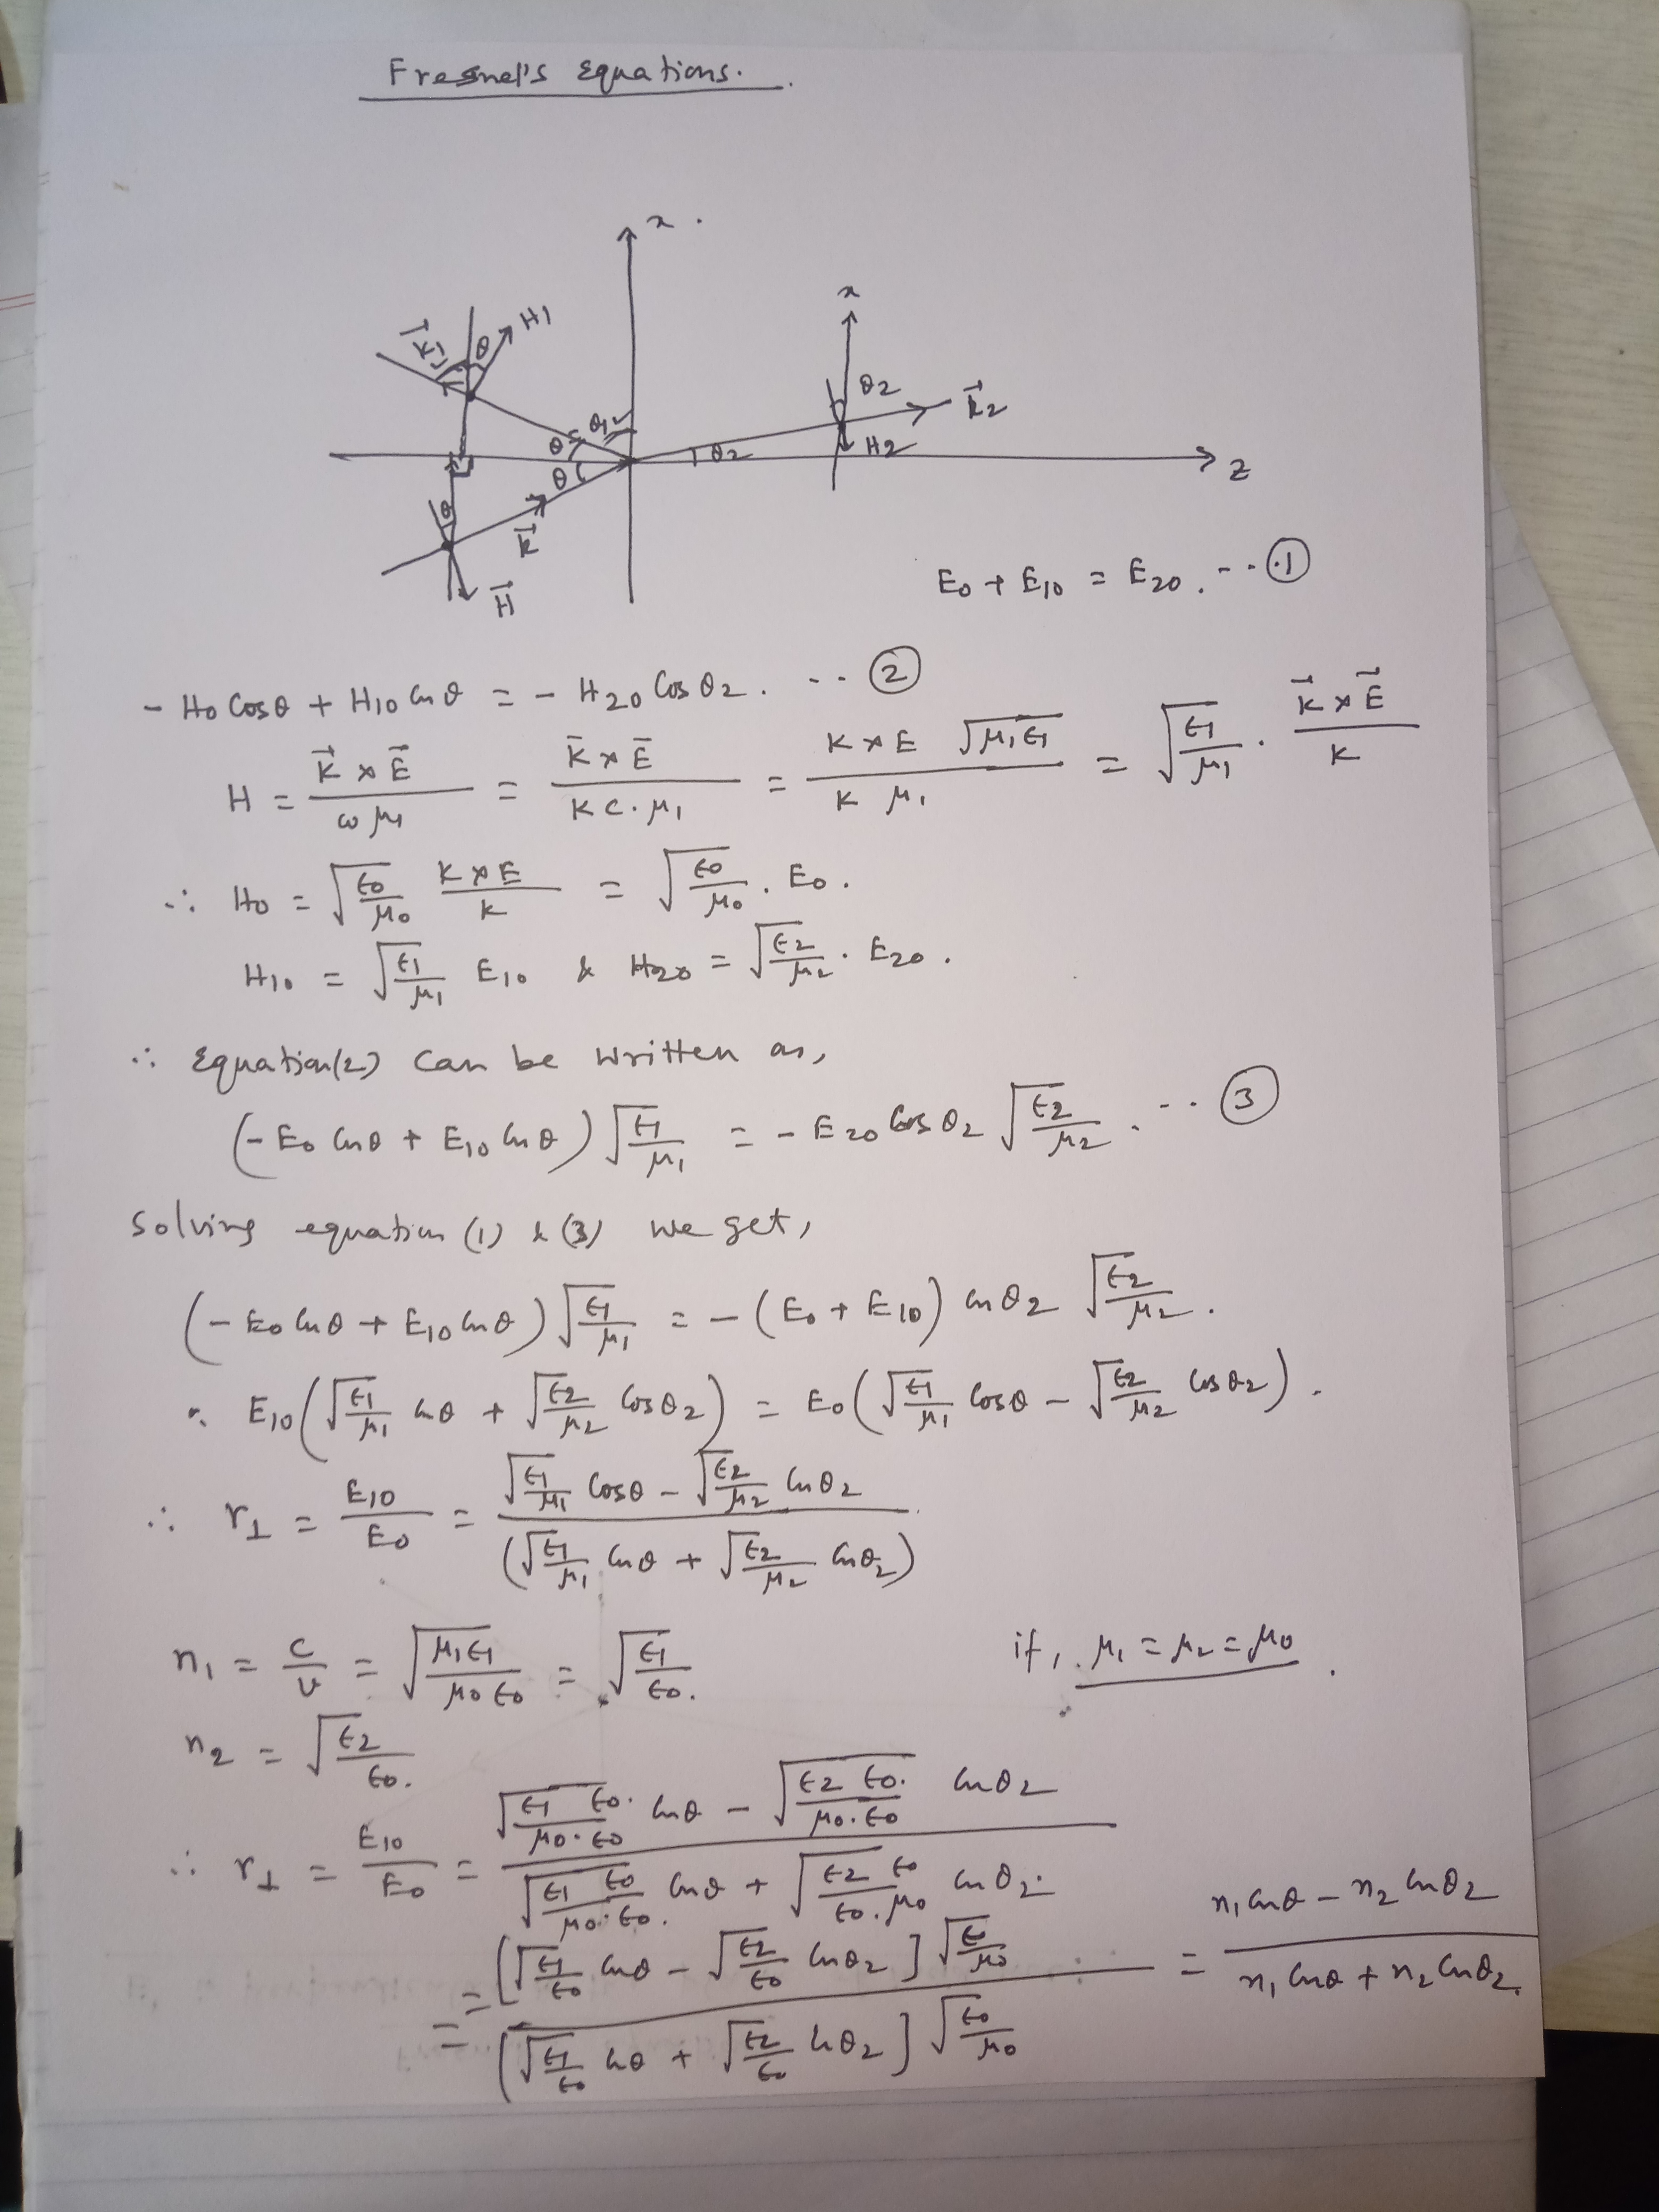 Fresnel's Equations.
x
x
K⃗1 θ H1
θ2 K⃗2
θ θ1
H2
θ2 Z
θ
θ
K⃗
H⃗
E0 + E10 = E20. ... (1)
- H0 Cosθ + H10 Cosθ = - H20 Cosθ2. ... (2)
H = K⃗ × E⃗ / ωμ1 = K̄ × Ē / K C·μ1 = K × E √μ1ϵ1 / K μ1 = √(ϵ1/μ1) · K⃗ × E⃗ / K
∴ H0 = √(ϵ0/μ0) K × E / K = √(ϵ0/μ0) · E0.
H10 = √(ϵ1/μ1) E10 & H20 = √(ϵ2/μ2) · E20.
∴ Equation(2) can be written as,
(- E0 Cosθ + E10 Cosθ) √(ϵ1/μ1) = - E20 Cosθ2 √(ϵ2/μ2). ... (3)
Solving equation (1) & (3) we get,
(- E0 Cosθ + E10 Cosθ) √(ϵ1/μ1) = - (E0 + E10) Cosθ2 √(ϵ2/μ2).
∴ E10 (√(ϵ1/μ1) Cosθ + √(ϵ2/μ2) Cosθ2) = E0 (√(ϵ1/μ1) Cosθ - √(ϵ2/μ2) Cosθ2).
∴ r⊥ = E10 / E0 = √(ϵ1/μ1) Cosθ - √(ϵ2/μ2) Cosθ2 / (√(ϵ1/μ1) Cosθ + √(ϵ2/μ2) Cosθ2)
n1 = c/v = √(μ1ϵ1 / μ0ϵ0) = √(ϵ1/ϵ0). if, μ1 = μ2 = μ0.
n2 = √(ϵ2/ϵ0).
∴ r⊥ = E10 / E0 = √(ϵ1 ϵ0 / μ0·ϵ0) Cosθ - √(ϵ2 ϵ0 / μ0·ϵ0) Cosθ2 / √(ϵ1 ϵ0 / μ0·ϵ0) Cosθ + √(ϵ2 ϵ0 / ϵ0·μ0) Cosθ2
= [√(ϵ1/ϵ0) Cosθ - √(ϵ2/ϵ0) Cosθ2] √(ϵ0/μ0) / [√(ϵ1/ϵ0) Cosθ + √(ϵ2/ϵ0) Cosθ2] √(ϵ0/μ0) = n1 Cosθ - n2 Cosθ2 / n1 Cosθ + n2 Cosθ2.